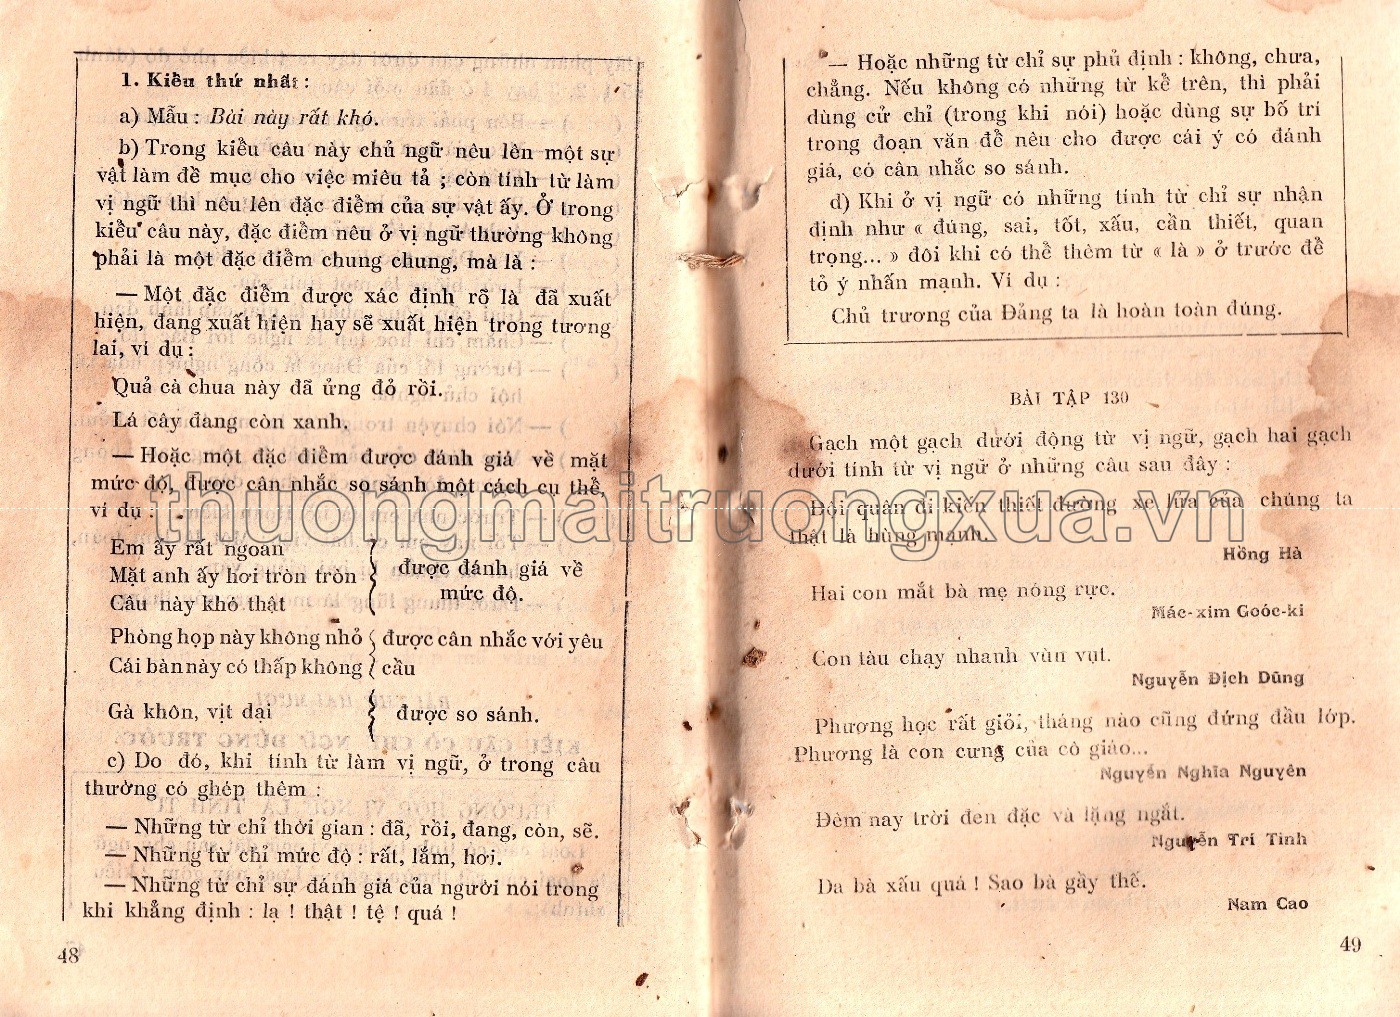 1. Kiểu thứ nhất :
a) Mẫu : Bài này rất khó.
b) Trong kiểu câu này chủ ngữ nêu lên một sự
vật làm đề mục cho việc miêu tả ; còn tính từ làm
vị ngữ thì nêu lên đặc điểm của sự vật ấy. Ở trong
kiểu câu này, đặc điểm nêu ở vị ngữ thường không
phải là một đặc điểm chung chung, mà là :
— Một đặc điểm được xác định rõ là đã xuất
hiện, đang xuất hiện hay sẽ xuất hiện trong tương
lai, ví dụ :
Quả cà chua này đã ửng đỏ rồi.
Lá cây đang còn xanh.
— Hoặc một đặc điểm được đánh giá về mặt
mức độ, được cân nhắc so sánh một cách cụ thể,
ví dụ :
Em ấy rất ngoan
Mặt anh ấy hơi tròn tròn
Câu này khó thật
được đánh giá về
mức độ.
Phòng họp này không nhỏ
Cái bàn này có thấp không
được cân nhắc với yêu
cầu
Gà khôn, vịt dại
được so sánh.
c) Do đó, khi tính từ làm vị ngữ, ở trong câu
thường có ghép thêm :
— Những từ chỉ thời gian : đã, rồi, đang, còn, sẽ.
— Những từ chỉ mức độ : rất, lắm, hơi.
— Những từ chỉ sự đánh giá của người nói trong
khi khẳng định : lạ ! thật ! tệ ! quá !
48
— Hoặc những từ chỉ sự phủ định : không, chưa,
chẳng. Nếu không có những từ kể trên, thì phải
dùng cử chỉ (trong khi nói) hoặc dùng sự bố trí
trong đoạn văn để nêu cho được cái ý có đánh
giá, có cân nhắc so sánh.
d) Khi ở vị ngữ có những tính từ chỉ sự nhận
định như « đúng, sai, tốt, xấu, cần thiết, quan
trọng... » đôi khi có thể thêm từ « là » ở trước để
tỏ ý nhấn mạnh. Ví dụ :
Chủ trương của Đảng ta là hoàn toàn đúng.
BÀI TẬP 130
Gạch một gạch dưới động từ vị ngữ, gạch hai gạch
dưới tính từ vị ngữ ở những câu sau đây :
Đội quân đi kiến thiết đường xe lửa của chúng ta
thật là hùng mạnh.
Hồng Hà
Hai con mắt bà mẹ nóng rực.
Mác-xim Goóc-ki
Con tàu chạy nhanh vùn vụt.
Nguyễn Địch Dũng
Phương học rất giỏi, tháng nào cũng đứng đầu lớp.
Phương là con cưng của cô giáo...
Nguyễn Nghĩa Nguyên
Đêm nay trời đen đặc và lặng ngắt.
Nguyễn Trí Tình
Da bà xấu quá ! Sao bà gầy thế.
Nam Cao
49
thuongmaitruongxua.vn